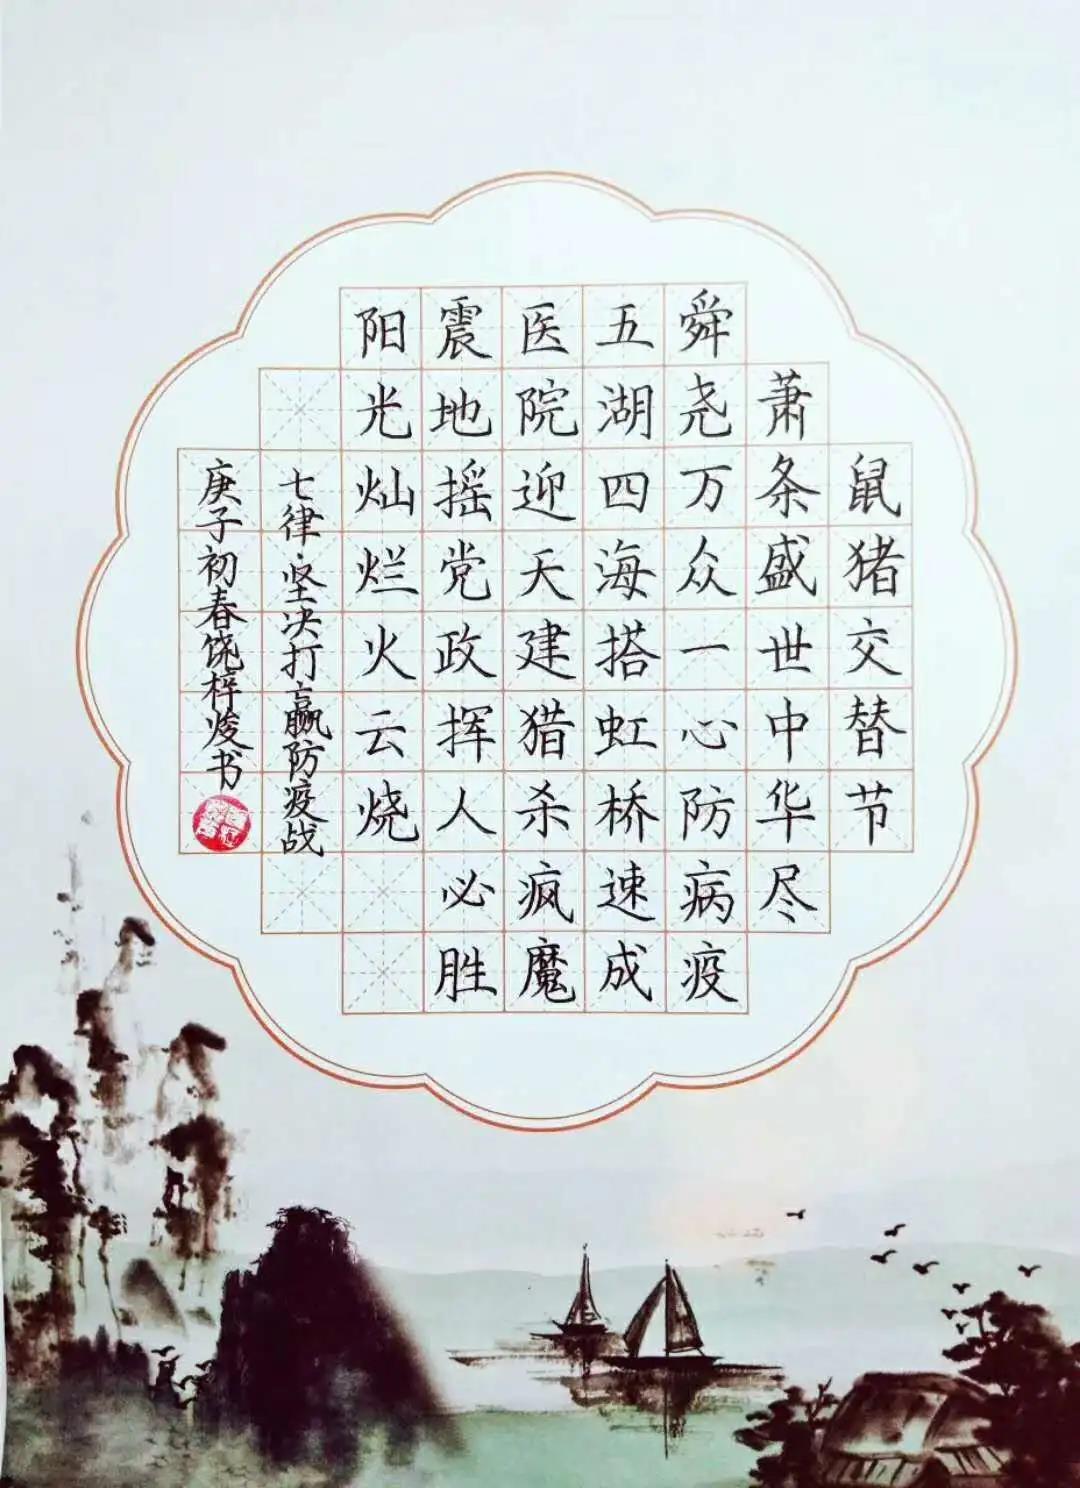 鼠猪交替节
萧条盛世中华尽
舜尧万众一心防病疫
五湖四海搭虹桥速成
医院迎天建猎杀疯魔
震地摇党政挥人必胜
阳光灿烂火云烧
七律坚决打赢防疫战
庚子初春饶梓焌书